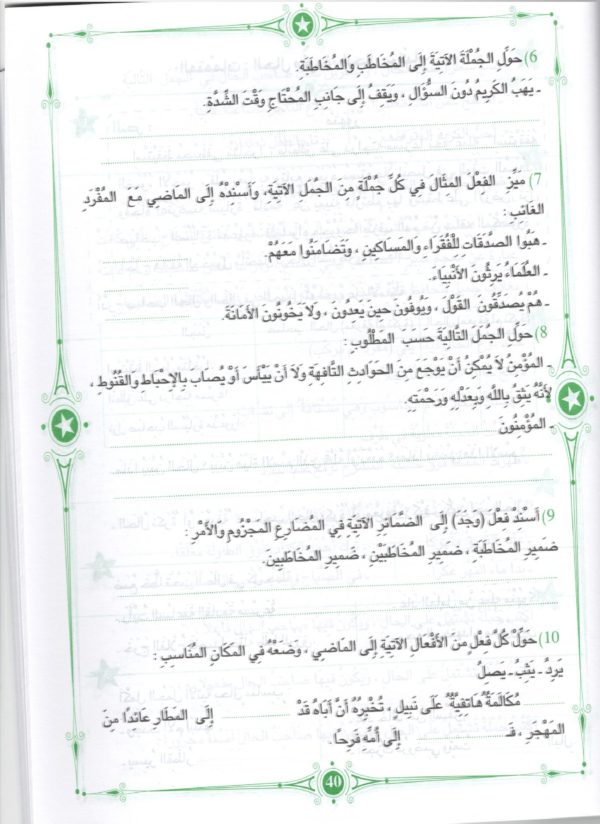 6) حَوِّلِ الجُمْلَةَ الآتِيَةَ إِلَى المُخَاطَبِ وَالمُخَاطَبَةِ.
ـ يَهَبُ الكَرِيمُ دُونَ السُّؤَالِ ، وَيَقِفُ إِلَى جَانِبِ المُحْتَاجِ وَقْتَ الشِّدَّةِ.
7) مَيِّزِ الفِعْلَ المِثَالَ فِي كُلِّ جُمْلَةٍ مِنَ الجُمَلِ الآتِيَةِ، وَأَسْنِدْهُ إِلَى المَاضِي مَعَ المُفْرَدِ
الغَائِبِ:
ـ هَبُوا الصَّدَقَاتِ لِلْفُقَرَاءِ وَالمَسَاكِينِ ، وَتَضَامَنُوا مَعَهُمْ.
ـ العُلَمَاءُ يَرِثُونَ الأَنْبِيَاءَ.
ـ هُمْ يُصَدِّقُونَ القَوْلَ، وَيُوفُونَ حِينَ يَعِدُونَ ، وَلاَ يَخُونُونَ الأَمَانَةَ.
8) حَوِّلِ الجُمَلَ التَّالِيَةَ حَسَبَ المَطْلُوبِ :
ـ المُؤْمِنُ لاَ يُمْكِنُ أَنْ يَوْجَعَ مِنَ الحَوَادِثِ التَّافِهَةِ وَلاَ أَنْ يَيْأَسَ أَوْ يُصَابَ بِالإِحْبَاطِ وَالقُنُوطِ ،
لأَنَّهُ يَثِقُ بِاللَّهِ وَبِعَدْلِهِ وَرَحْمَتِهِ.
ـ المُؤْمِنُونَ
9) أَسْنِدْ فِعْلَ (وَجَدَ) إِلَى الضَّمَائِرِ الآتِيَةِ فِي المُضَارِعِ المَجْزُومِ وَالأَمْرِ :
ضَمِيرِ المُخَاطَبَةِ ، ضَمِيرِ المُخَاطَبَيْنِ ، ضَمِيرِ المُخَاطَبِينَ.
10) حَوِّلْ كُلَّ فِعْلٍ مِنَ الأَفْعَالِ الآتِيَةِ إِلَى المَاضِي ، وَضَعْهُ فِي المَكَانِ المُنَاسِبِ :
يَرِدُ ـ يَثِبُ ـ يَصِلُ
مُكَالَمَةٌ هَاتِفِيَّةٌ عَلَى نَبِيلٍ ، تُخْبِرُهُ أَنَّ أَبَاهُ قَدْ إِلَى المَطَارِ عَائِدًا مِنَ
المَهْجَرِ ، فَـ إِلَى أُمِّهِ فَرِحًا.
40